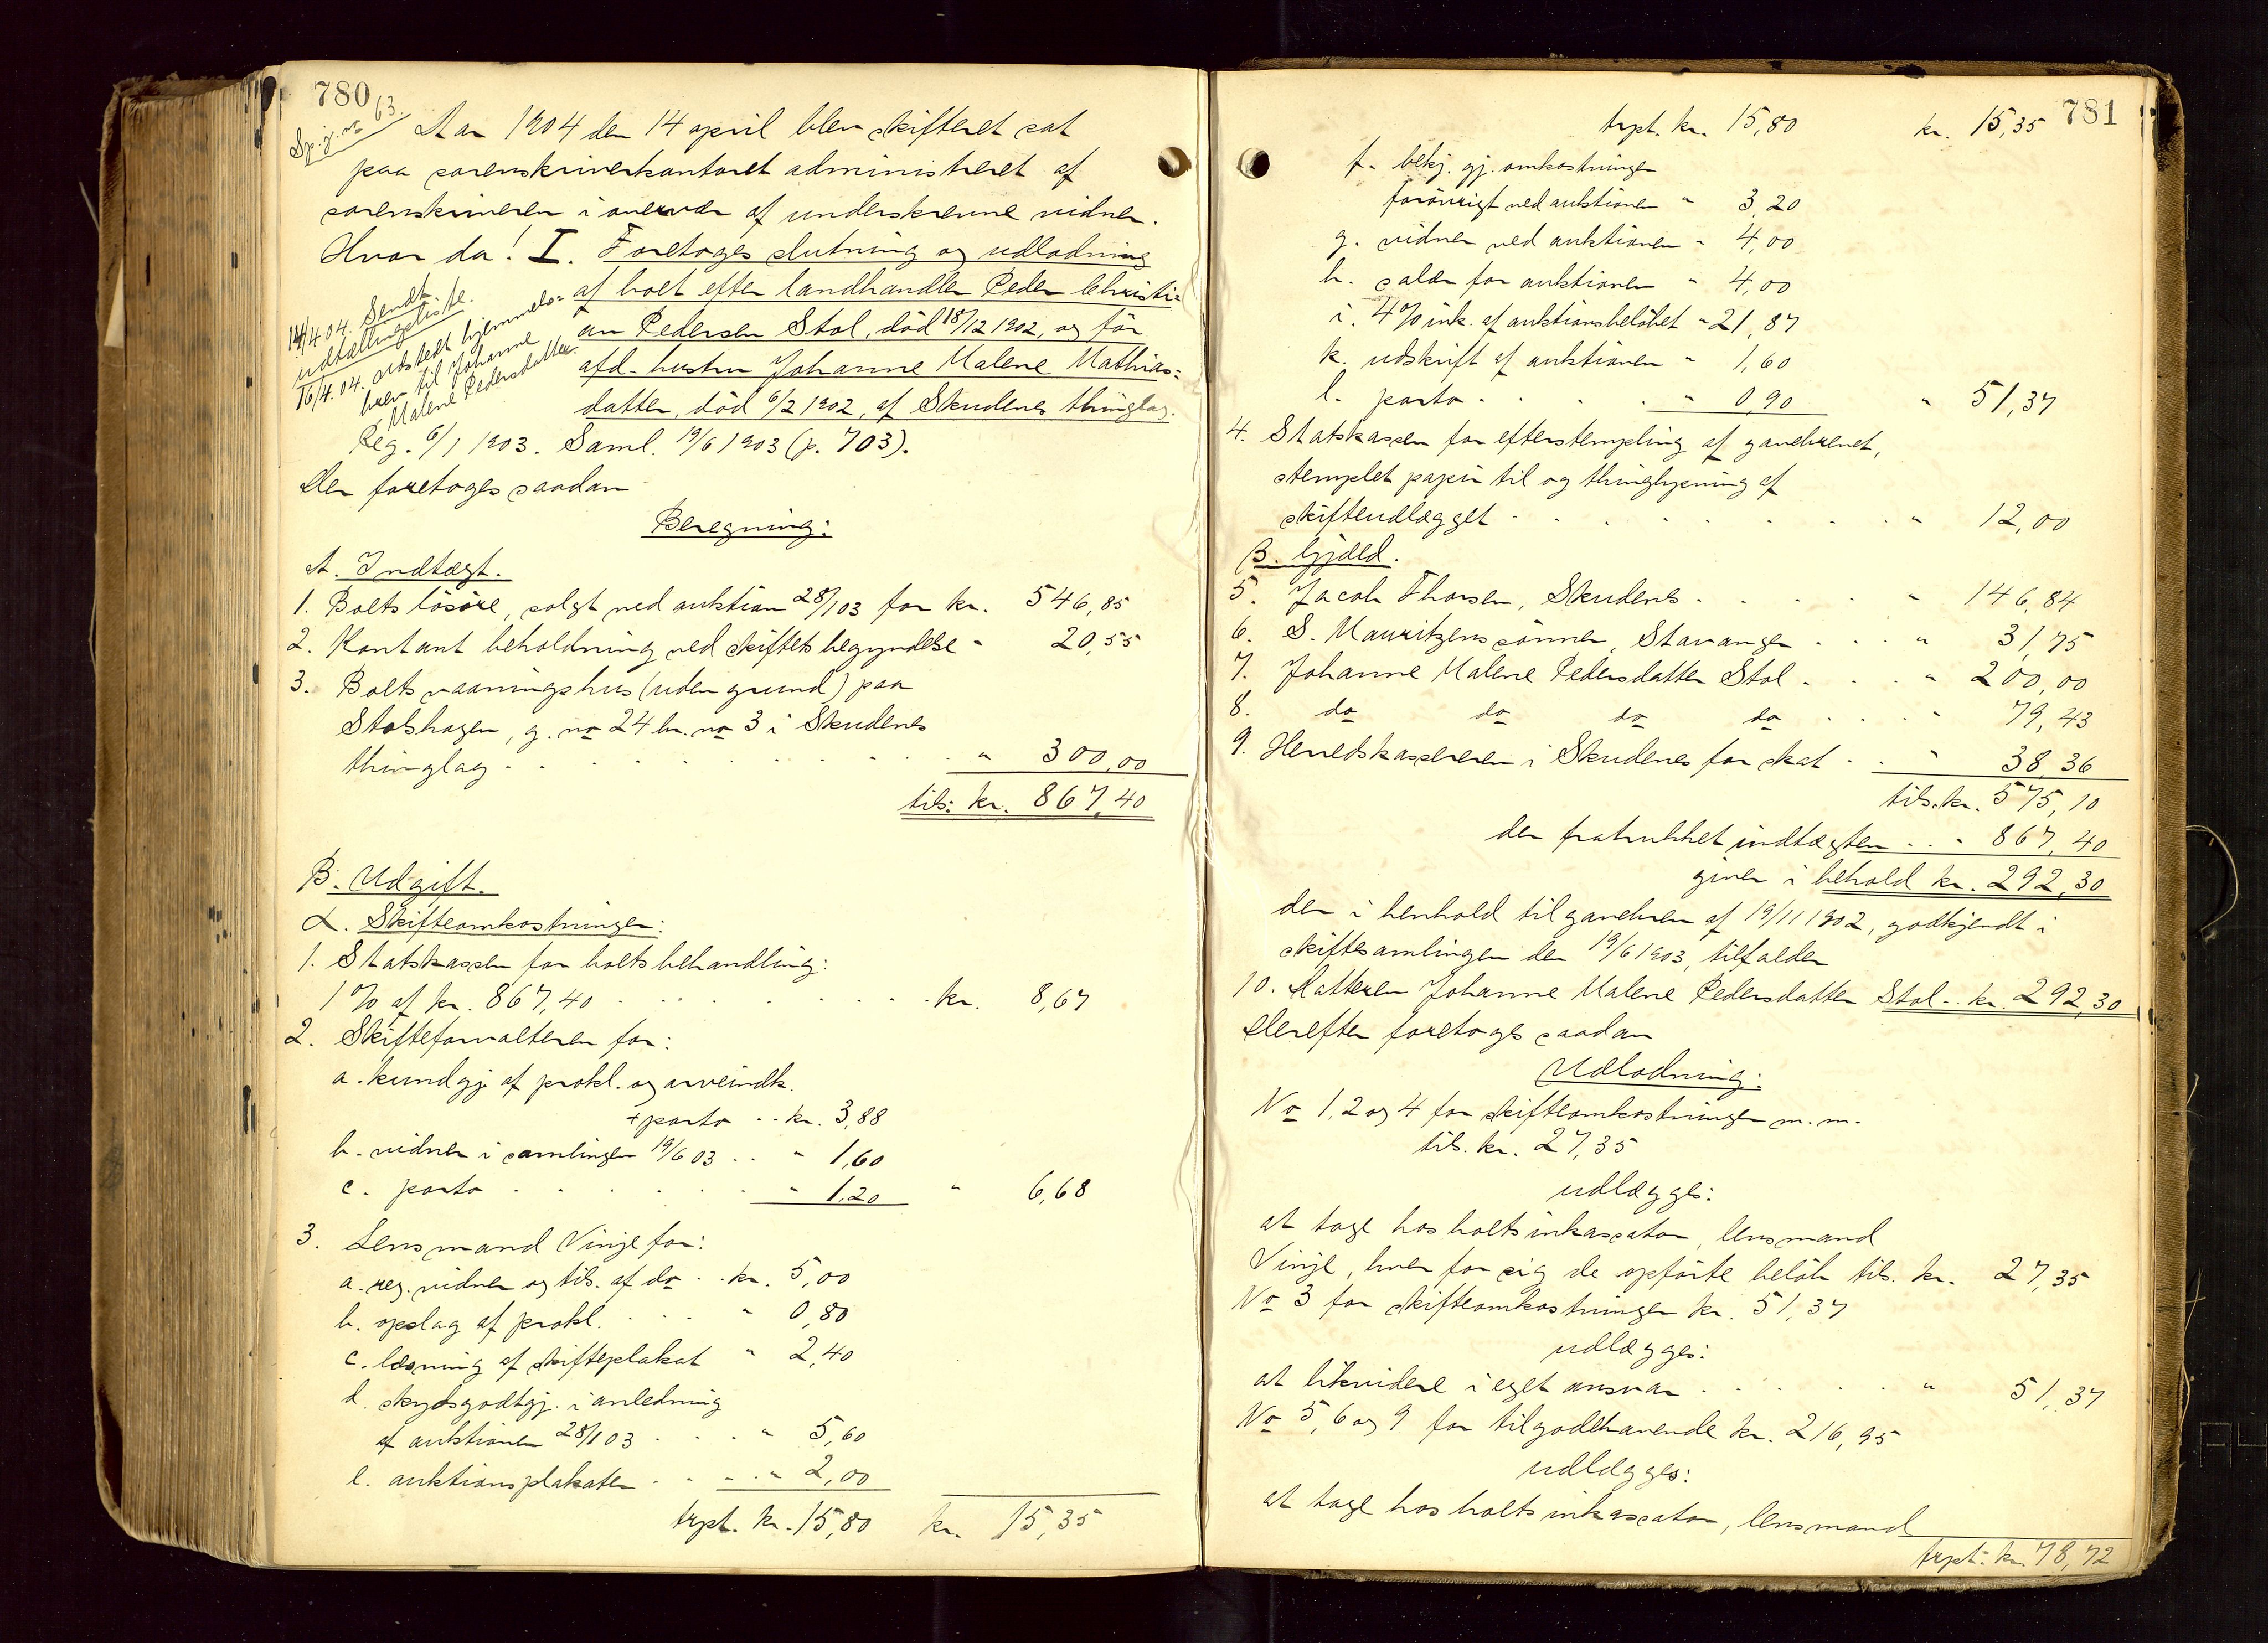 780
Sp. j. no 63.
Aar 1904 den 14 april blev skifteret sat
paa sorenskriverkontoret administreret af
sorenskriveren i overvær af underskrevne vidner.
Hvor da! I. Foretoges slutning og udlodning
af boet efter landhandler Peder Christi-
an Pedersen Stol, död 18/12 1902, og för
afd. hustru Johanne Malene Mathias-
datter, död 6/2 1902, af Skudenes thinglag.
14/4 04. Sendt
udtællingsliste.
16/4. 04. udstedt hjemmels-
brev til Johanne
Malene Pedersdatter.
Reg. 6/1 1903. Saml. 19/6 1903 (p. 703).
Der foretoges saadan
Beregning:
A. Indtægt.
1. Boets lösöre, solgt ved auktion 28/1 03 for kr. 546,85
2. Kontant beholdning ved skiftets begyndelse " 20,55
3. Boets vaaningshus (uden grund) paa
Stolshagen, g. no 24 br. no 3 i Skudenes
thinglag " 300,00
tils: kr. 867,40
B. Udgift.
α. Skifteomkostninger:
1. Statskassen for boets behandling:
1 % af kr. 867,40 kr. 8,67
2. Skifteforvalteren for:
a. kundgj. af prokl. og arveindk.
+ porto .. kr. 3,88
b. vidner i samlingen 19/6 03 .. " 1,60
c. porto " 1,20 " 6,68
3. Lensmand Vinje for:
a. reg. vidner og tils. af do .. kr. 5,00
b. opslag af prokl. " 0,80
c. læsning af skifteplakat " 2,40
d. skydsgodtgj. i anledning
af auktionen 28/1 03 " 5,60
e. auktionsplakater " 2,00
trpt. kr. 15,80 kr. 15,35
781
trpt. kr. 15,80 kr. 15,35
f. bekj. gj. omkostninger
forövrigt ved auktionen " 3,20
g. vidner ved auktionen " 4,00
h. salær for auktionen " 4,00
i. 4% ink. af auktionsbelöbet " 21,87
k. udskrift af auktionen " 1,60
l. porto " 0,90 " 51,37
4. Statskassen for efterstempling af gavebrevet,
stemplet papir til og thinglysning af
skifteudlægget " 12,00
β. Gjæld.
5. Jacob Thorsen, Skudenes " 146,84
6. S. Mauritzens sönner, Stavanger " 31,75
7. Johanne Malene Pedersdatter Stol " 200,00
8. do do do do " 79,43
9. Herredskassereren i Skudenes for skat " 38,36
tils. kr. 575,10
der fratrukket indtægten " 867,40
giver i behold kr. 292,30
der i henhold til gavebrev af 19/11 1902, godkjendt i
skiftesamlingen den 19/6 1903, tilfalder
10. Datteren Johanne Malene Pedersdatter Stol .. kr. 292,30
Derefter foretoges saadan
Udlodning:
No 1, 2 og 4 for skifteomkostninger m. m.
tils. kr. 27,35
udlægges:
at tage hos boets inkassator, lensmand
Vinje, hver for sig de opförte belöb tils. kr. 27,35
No 3 for skifteomkostninger kr. 51,37
udlægges:
at likvidere i eget ansvar " 51,37
No 5, 6 og 9 for tilgodehavende kr. 216,95
udlægges:
at tage hos boets inkassator, lensmand
trpt. kr. 78,72